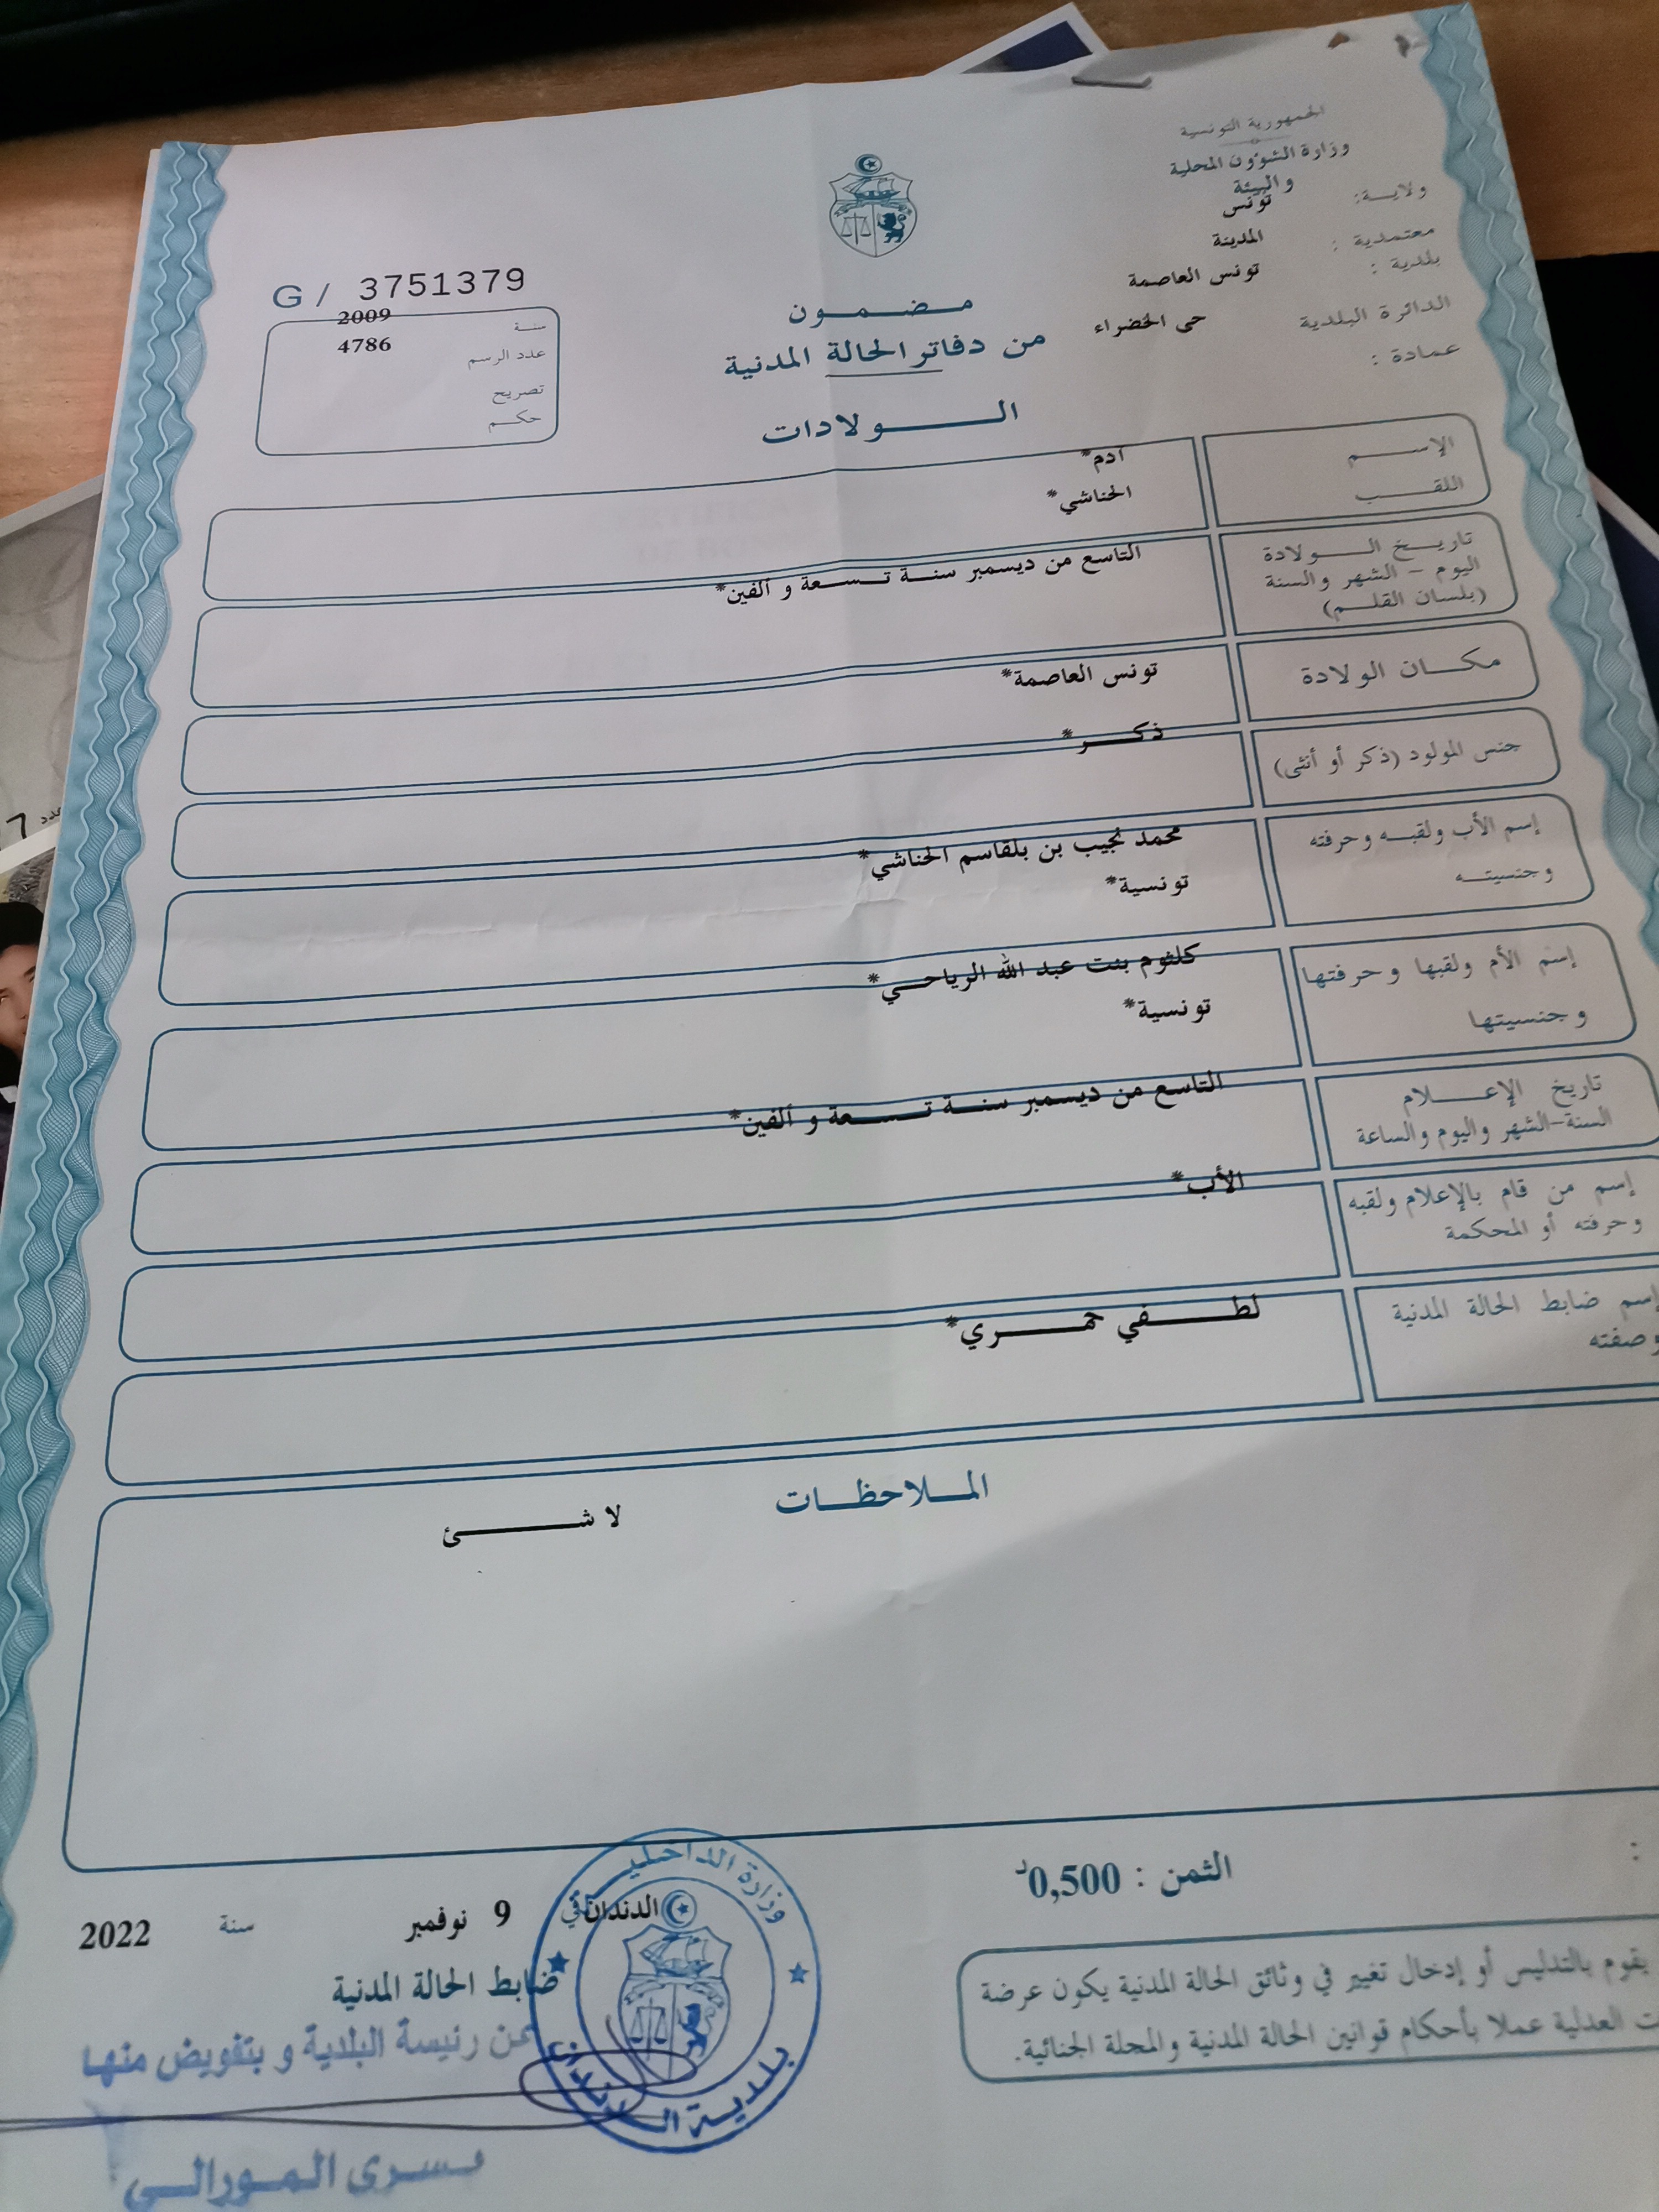 الجمهورية التونسية
وزارة الشؤون المحلية
والبيئة
ولايـــة: تونس
معتمدية : المدينة
بلدية : تونس العاصمة
الدائرة البلدية حي الخضراء
عمادة :
مـضـمـون
من دفاتر الحالة المدنية
الـــولادات
G / 3751379
سنة 2009
عدد الرسم 4786
تصريح
حكـم
الإســـم آدم*
اللقـــب الحناشي*
تاريـخ الـــولادة
اليوم – الشهر والسنة
(بلسان القلـم)
التاسع من ديسمبر سنـة تـسـعة و ألفين*
مكـــان الولادة تونس العاصمة*
جنس المولود (ذكر أو أنثى) ذكـــر*
إسم الأب ولقبـه وحرفته
وجنسيتـه
محمد نجيب بن بلقاسم الحناشي*
تونسية*
إسم الأم ولقبها وحرفتها
وجنسيتها
كلثوم بنت عبد الله الرياحـي*
تونسية*
تاريخ الإعـــلام
السنة-الشهر واليوم والساعة
التاسع من ديسمبر سنـة تـسـعة و ألفين*
إسم من قام بالإعلام ولقبه
وحرفته أو المحكمة
الأب*
إسم ضابط الحالة المدنية
وصفته
لطـــفي حمـــري*
المـلاحظـات
لا شـــئ
الثمن : 0,500د
الدندان في 9 نوفمبر سنة 2022
ضابط الحالة المدنية
عن رئيسة البلدية و بتفويض منها
يسرى المورالي
وزارة الداخلية
بلدية
يقوم بالتدليس أو إدخال تغيير في وثائق الحالة المدنية يكون عرضة
العدلية عملا بأحكام قوانين الحالة المدنية والمجلة الجنائية.